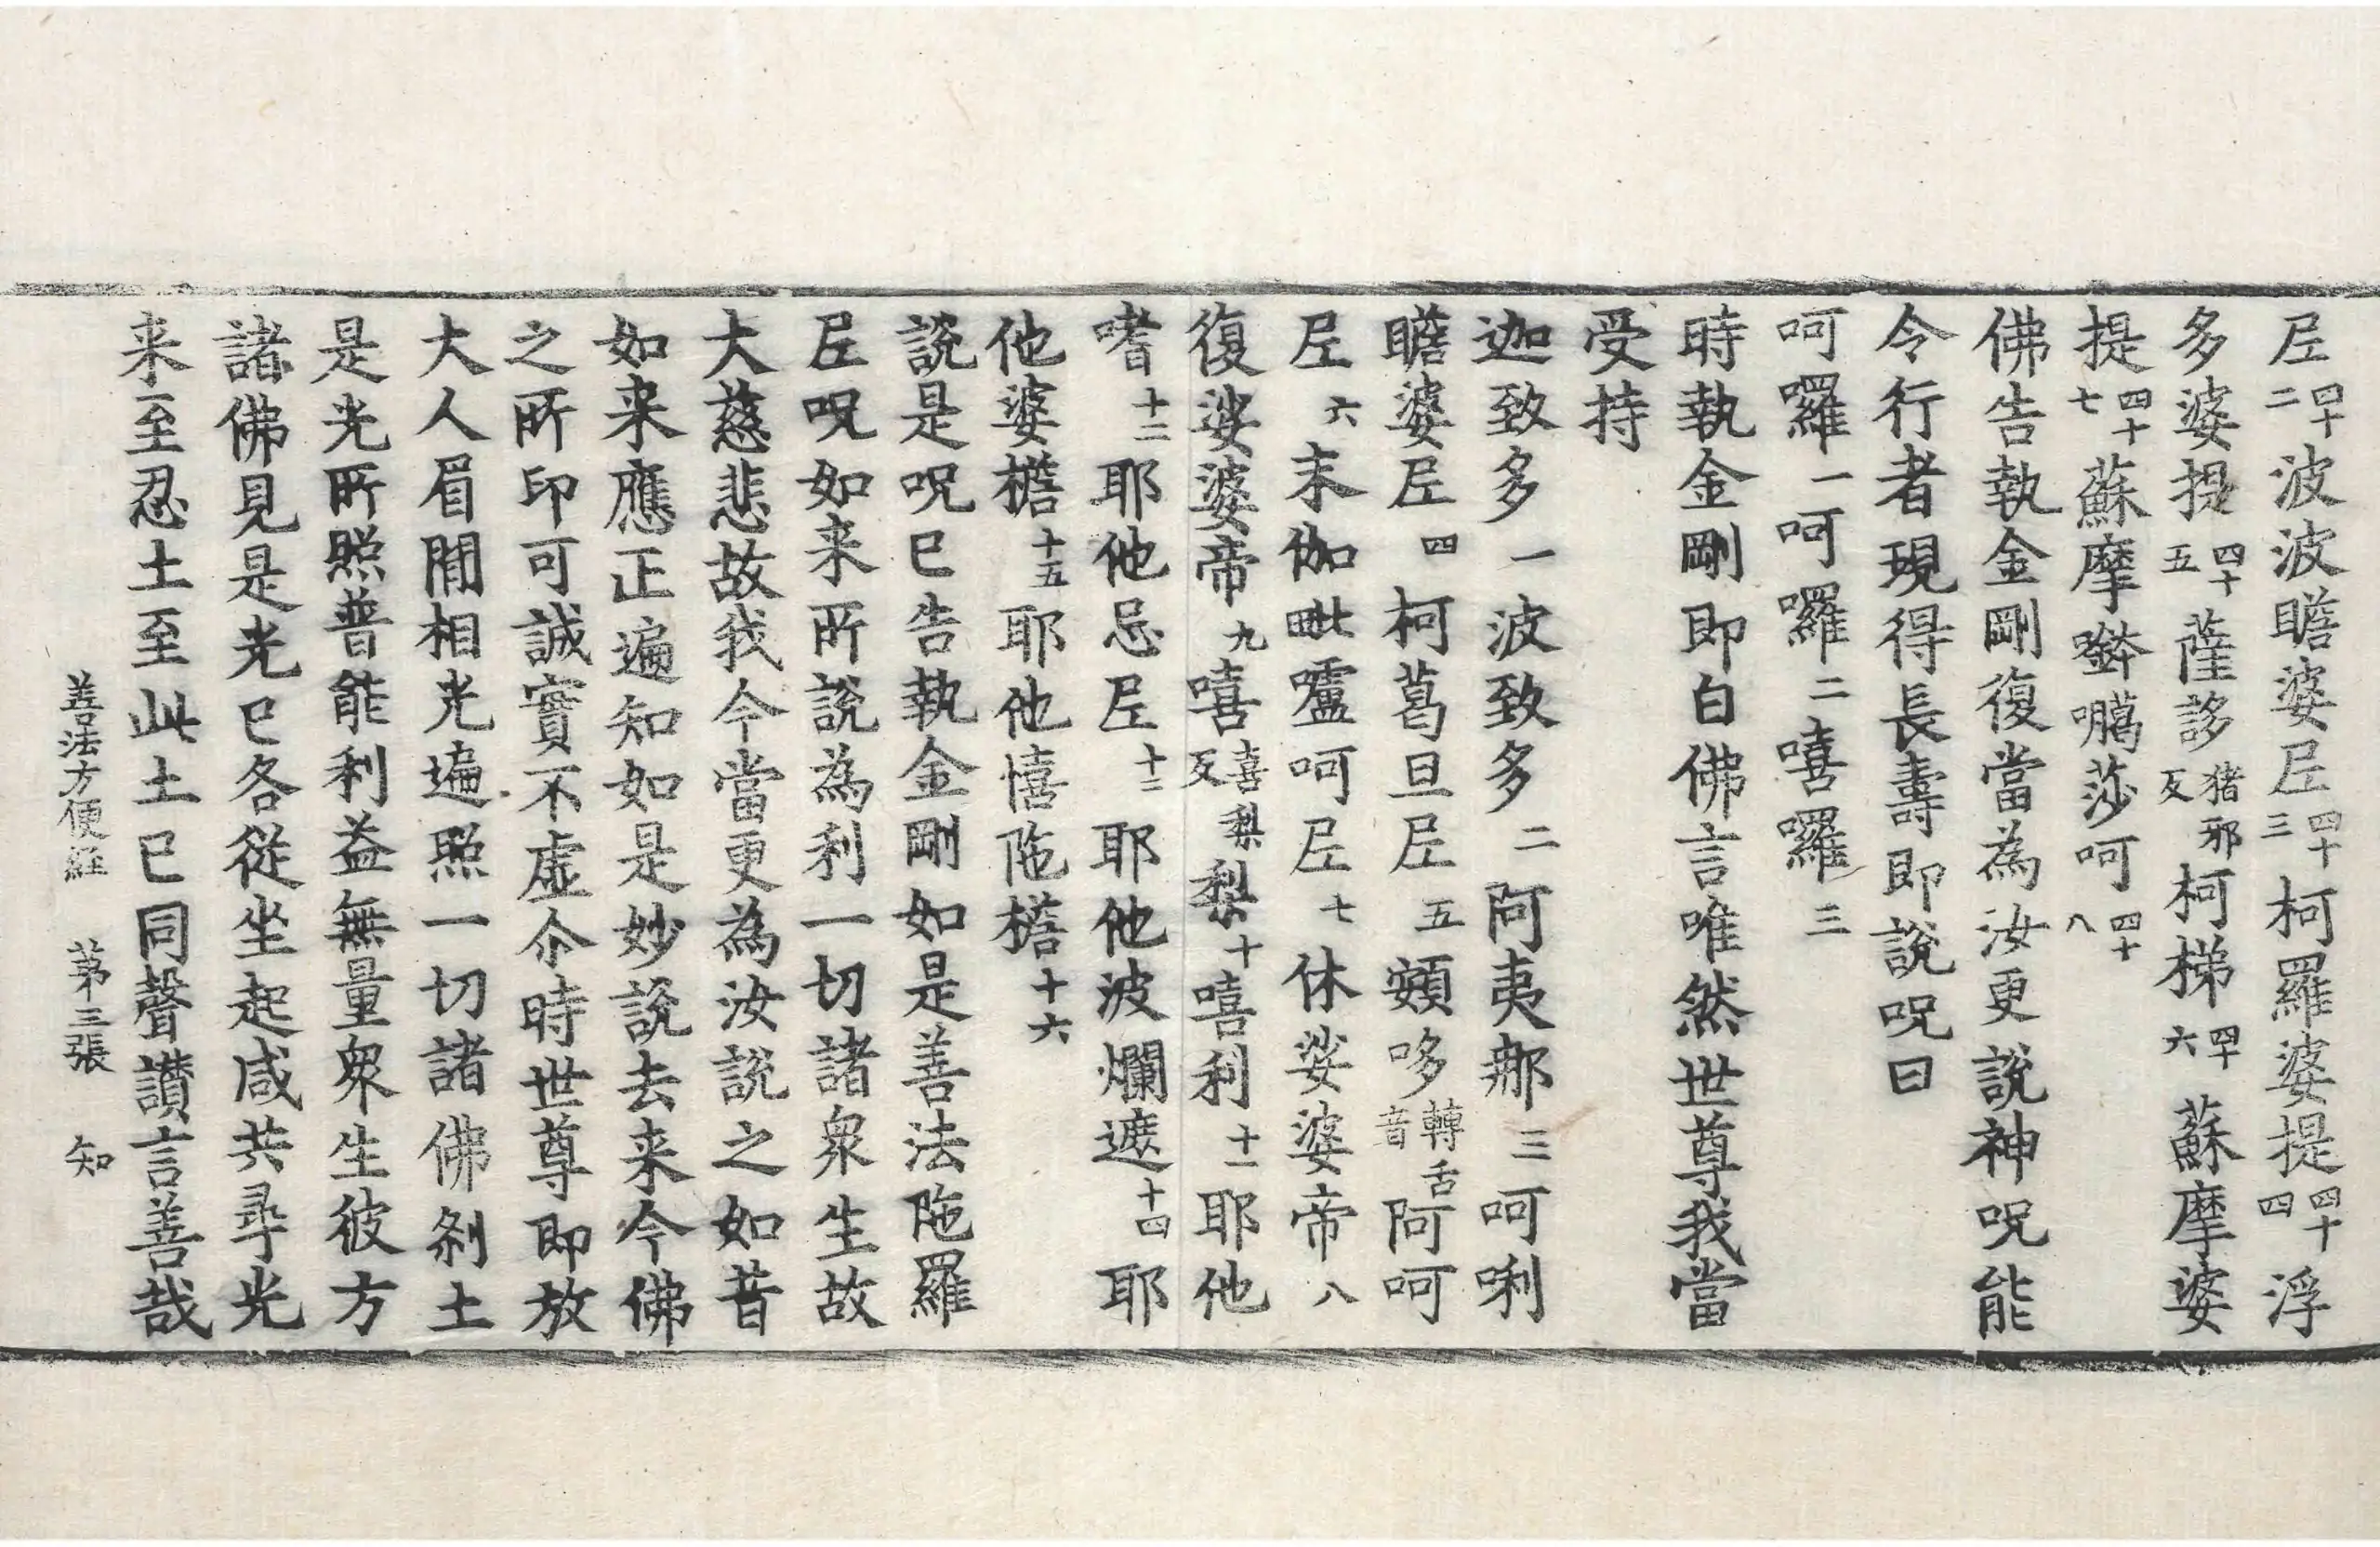 𡰱四十二波波瞻婆𡰱四十三柯羅婆提四十四浮
多婆提四十五薩誃猪邪反柯梯四十六蘇摩婆
提四十七蘇摩㘕莎呵四十八
佛告執金剛復當為汝更說神呪能
令行者現得長壽即說呪曰
呵囉一呵囉二嘻囉三
時執金剛即白佛言唯然世尊我當
受持
迦致多一波致多二阿夷那三呵唎
瞻婆𡰱四柯葛旦𡰱五頞哆轉舌音阿呵
𡰱六末伽毗嚧呵𡰱七休娑婆帝八
復娑婆帝九嘻喜梨反梨十嘻利十一耶他
嗜十二耶他忌𡰱十三耶他波爛遮十四耶
他婆檐十五耶他憘陁檐十六
說是呪已告執金剛如是善法陁羅
𡰱呪如来所說為利一切諸衆生故
大慈悲故我今當更為汝說之如昔
如来應正遍知如是妙說去来今佛
之所印可誠實不虛尒時世尊即放
大人眉間相光遍照一切諸佛刹土
是光所照普能利益無量衆生彼方
諸佛見是光已各從坐起咸共尋光
来至忍土至此土已同聲讃言善哉
善法方便経 苐三張 知